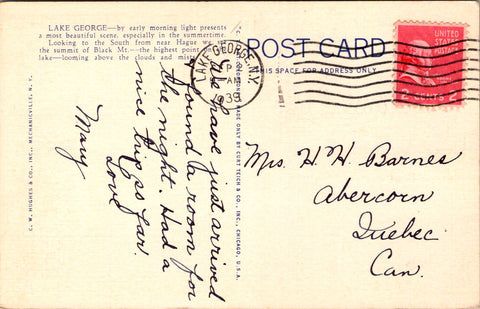 LAKE GEORGE—by early morning light presents
a most beautiful scene, especially in the summertime.
Looking to the South from near Hague we see
the summit of Black Mt.—the highest point on
lake—looming above the clouds and mist
POST CARD
THIS SPACE FOR ADDRESS ONLY
LAKE GEORGE, N.Y.
AM
1939
UNITED
STATES
POSTAGE
2 CENTS 2
We have just arrived
found a room for
the night. Had a
nice trip so far.
Love
Mary
Mrs. H. H. Barnes
Abercorn
Quebec
Can.
C. W. HUGHES & CO., INC., MECHANICVILLE, N. Y.
MADE ONLY BY CURT TEICH & CO., INC., CHICAGO, U.S.A.